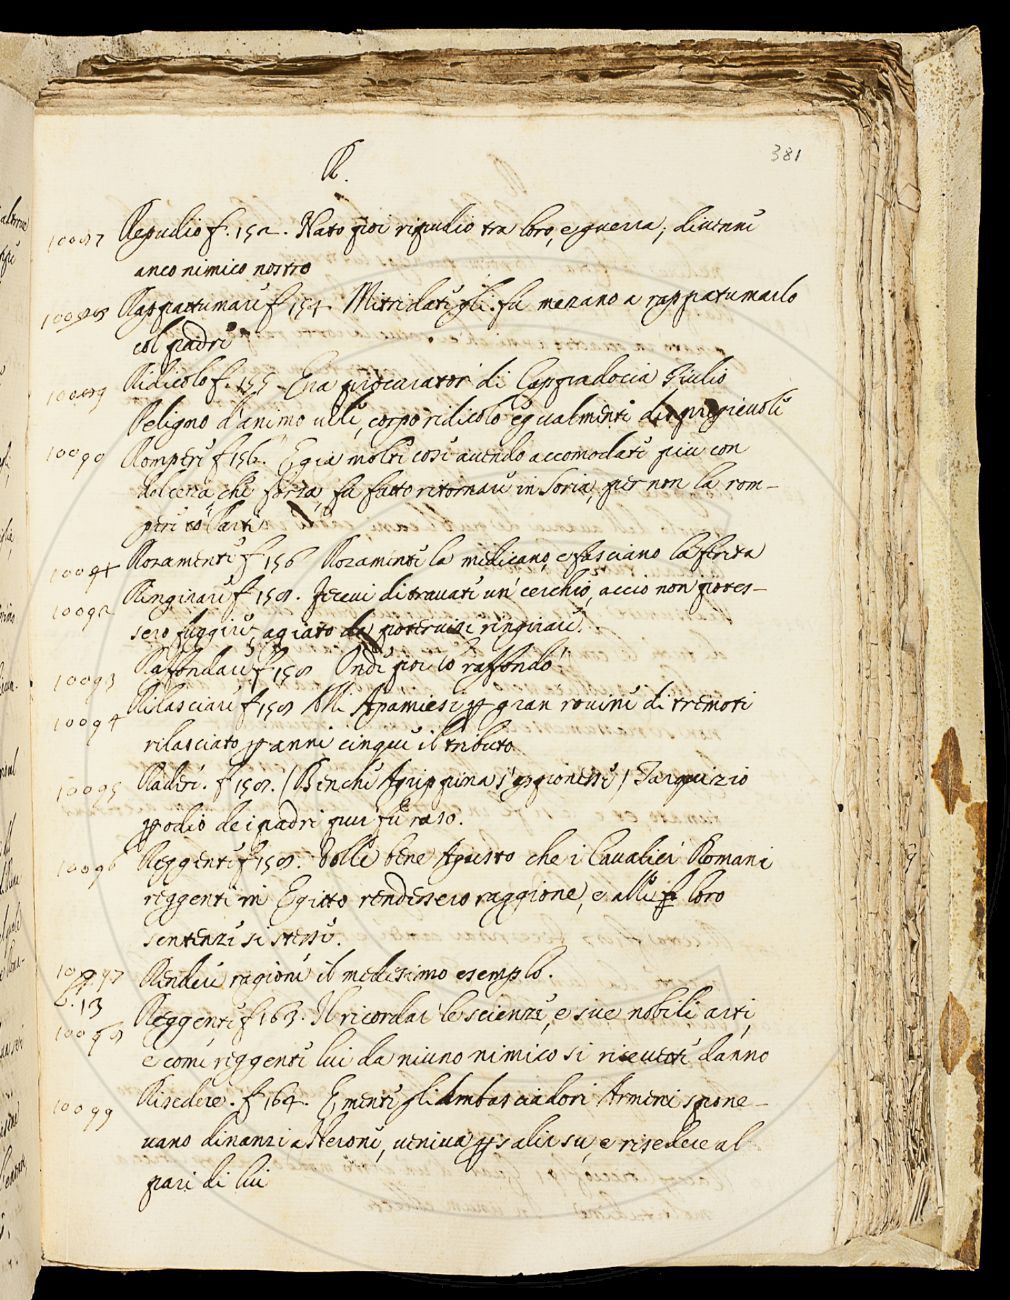 381
R.
10087 Repudio f. 152. Nato poi ripudio tra loro, e guerra, divenne
anco nimico nostro
10088 Rappattumare f. 154. Mitridate gli fu mezano a rappatumarlo
col padre
10089 Ridicolo f. 155. Era procurator di Cappadocia Giulio
Peligno d'animo vile, corpo ridicolo egualmente dispregievole
10090 Rompere f. 156. E gia molte cose avendo accomodate piu con
dolcezza che forza, fu fatto ritornare in Soria, per non la rom-
pere co' Parti
10091 Rozamente f. 156 Rozamente la medicano, e fasciano la ferita
10092 Ringirare f. 158. fecevi di travate un' cerchio, accio non potes-
sero fuggire, agiato da potervisi ringirare.
10093 Raffondare f. 158 Onde poi lo raffondò
10094 Rilasciare f. 158 Alli Apamiesi p gran rovine di tremoti
rilasciato p anni cinque il tributo
10095 Radere. f. 158. / Benche Agrippina s'opponesse / Tarquizio
p odio dei padri pur fu raso.
10096 Reggente f. 158. Volle bene Agusto che i Cavalieri Romani
reggenti in Egitto rendessero raggione, e alle loro
sentenze si stesse.
10097 Rendere ragione il medesimo esemplo.
L. 13
10098 Reggente f. 163. Il ricordar le scienze, e sue nobili arti,
e come reggente lui da niuno nimico si ricevette danno
10099 Risedere. f. 164. E mentre gli Ambasciadori Armeni spone-
vano dinanzi a Nerone, veniva p salir su, e risedere al
pari di lui